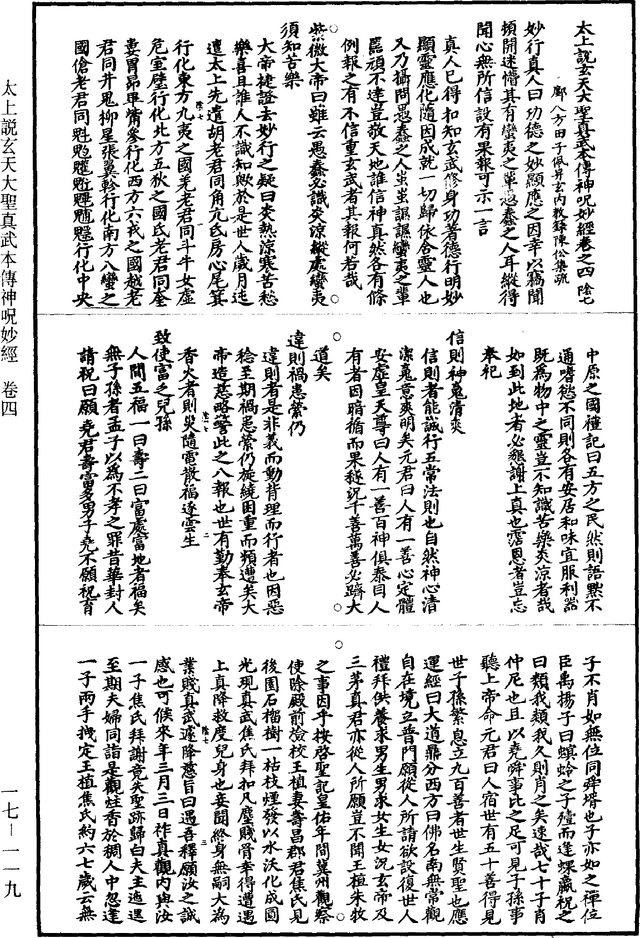 太上說玄天大聖真武本傳神呪妙經卷之四 陰七
鄺八方田子佩昇玄內教錄陳伀集疏
妙行真人曰功德之妙顯應之因幸以竊聞
頓開迷懵其有蠻夷之輩愚蠢之人耳縱得
聞心無所信設有果報可示一言
真人已得扣知玄武修身功著德行明妙
顯靈應化隨因成就一切歸依含靈人也
又乃撝問愚蠢之人蚩蚩謳謳蠻夷之輩
嚚頑不達豈敬天地誰信神真然各有條
例報之有不信重玄武者其報何若哉
紫微大帝曰雖云愚蠢必識炎涼縱處蠻夷
須知苦樂
大帝揵證去妙行之疑曰炎熱涼寒苦愁
樂喜且誰人不識知歟於是世人歲月迭
遷太上先遣胡老君同角亢氐房心尾箕
行化東方九夷之國羌老君同斗牛女虛
危室壁行化北方五狄之國氐老君同奎
婁胃昴畢觜參行化西方六戎之國越老
君同井鬼柳星張翼軫行化南方八蠻之
國傖老君同魁𩲃䰢魓䰡魒行化中央
中原之國禮記曰五方之民然則語默不
通嗜慾不同則各有安居和味宜服利器
既為物中之靈豈不知識苦樂炎涼者哉
如到此地者必懇謝上真也霑恩者豈忘
奉祀
信則神鬼清爽
信則者能誠行五常法則也自然神心清
潔鬼意爽明矣元君曰人有一善心定體
安虛皇天尊曰人有一善百神俱泰目人
有者因暗循而果發況千善萬善必躋大
道矣
違則禍患縈仍
違則者是非義而動背理而行者也因惡
稔至期禍患縈仍旋繞困重而頻遭矣大
帝造慈略警此之八報也世有勤奉玄帝
香火者則災隨電散福逐雲生
致使富之兒孫
人間五福一曰壽二曰富處富地者福矣
無子孫者孟子以為不孝之罪昔華封人
請祝曰願堯君壽富多男子堯不願祝有
子不肖如無位同舜壻也子亦如之禪位
臣禹揚子曰螟蛉之子殪而逢蜾蠃祝之
曰類我類我久則肖之矣速哉七十子肖
仲尼也且以堯舜事比之足可見子孫事
聽上帝命元君曰人宿世有五十善得見
世子孫繁息立九百善者世生賢聖也應
運經曰大道鼎分西方曰佛名南無常觀
自在境立普門願從人所請欲設後世人
禮拜供養求男生男求女生女況玄帝及
三茅真君亦從人所願豈不聞王植朱牧
之事因乎按啓聖記皇佑年間冀州觀察
使除殿前檢校王植妻壽昌郡君焦氏見
後園石榴樹一枯枝煙發以水沃化成圓
光現真武焦氏拜扣凡塵賤骨幸得遭遇
上真降救度兒身也妾聞終身無嗣大為
業賤真武遽降慈旨曰遇吾釋願汝之誠
感也可候來年三月三日祚真觀內與汝
一子焦氏拜謝竟失聖跡歸白夫主迤邐
至期夫婦同詣是觀炷香於稠人中忽逢
一子兩手拽定王植焦氏約六七歲云無
太上說玄天大聖真武本傳神呪妙經 卷四
一七—一一九